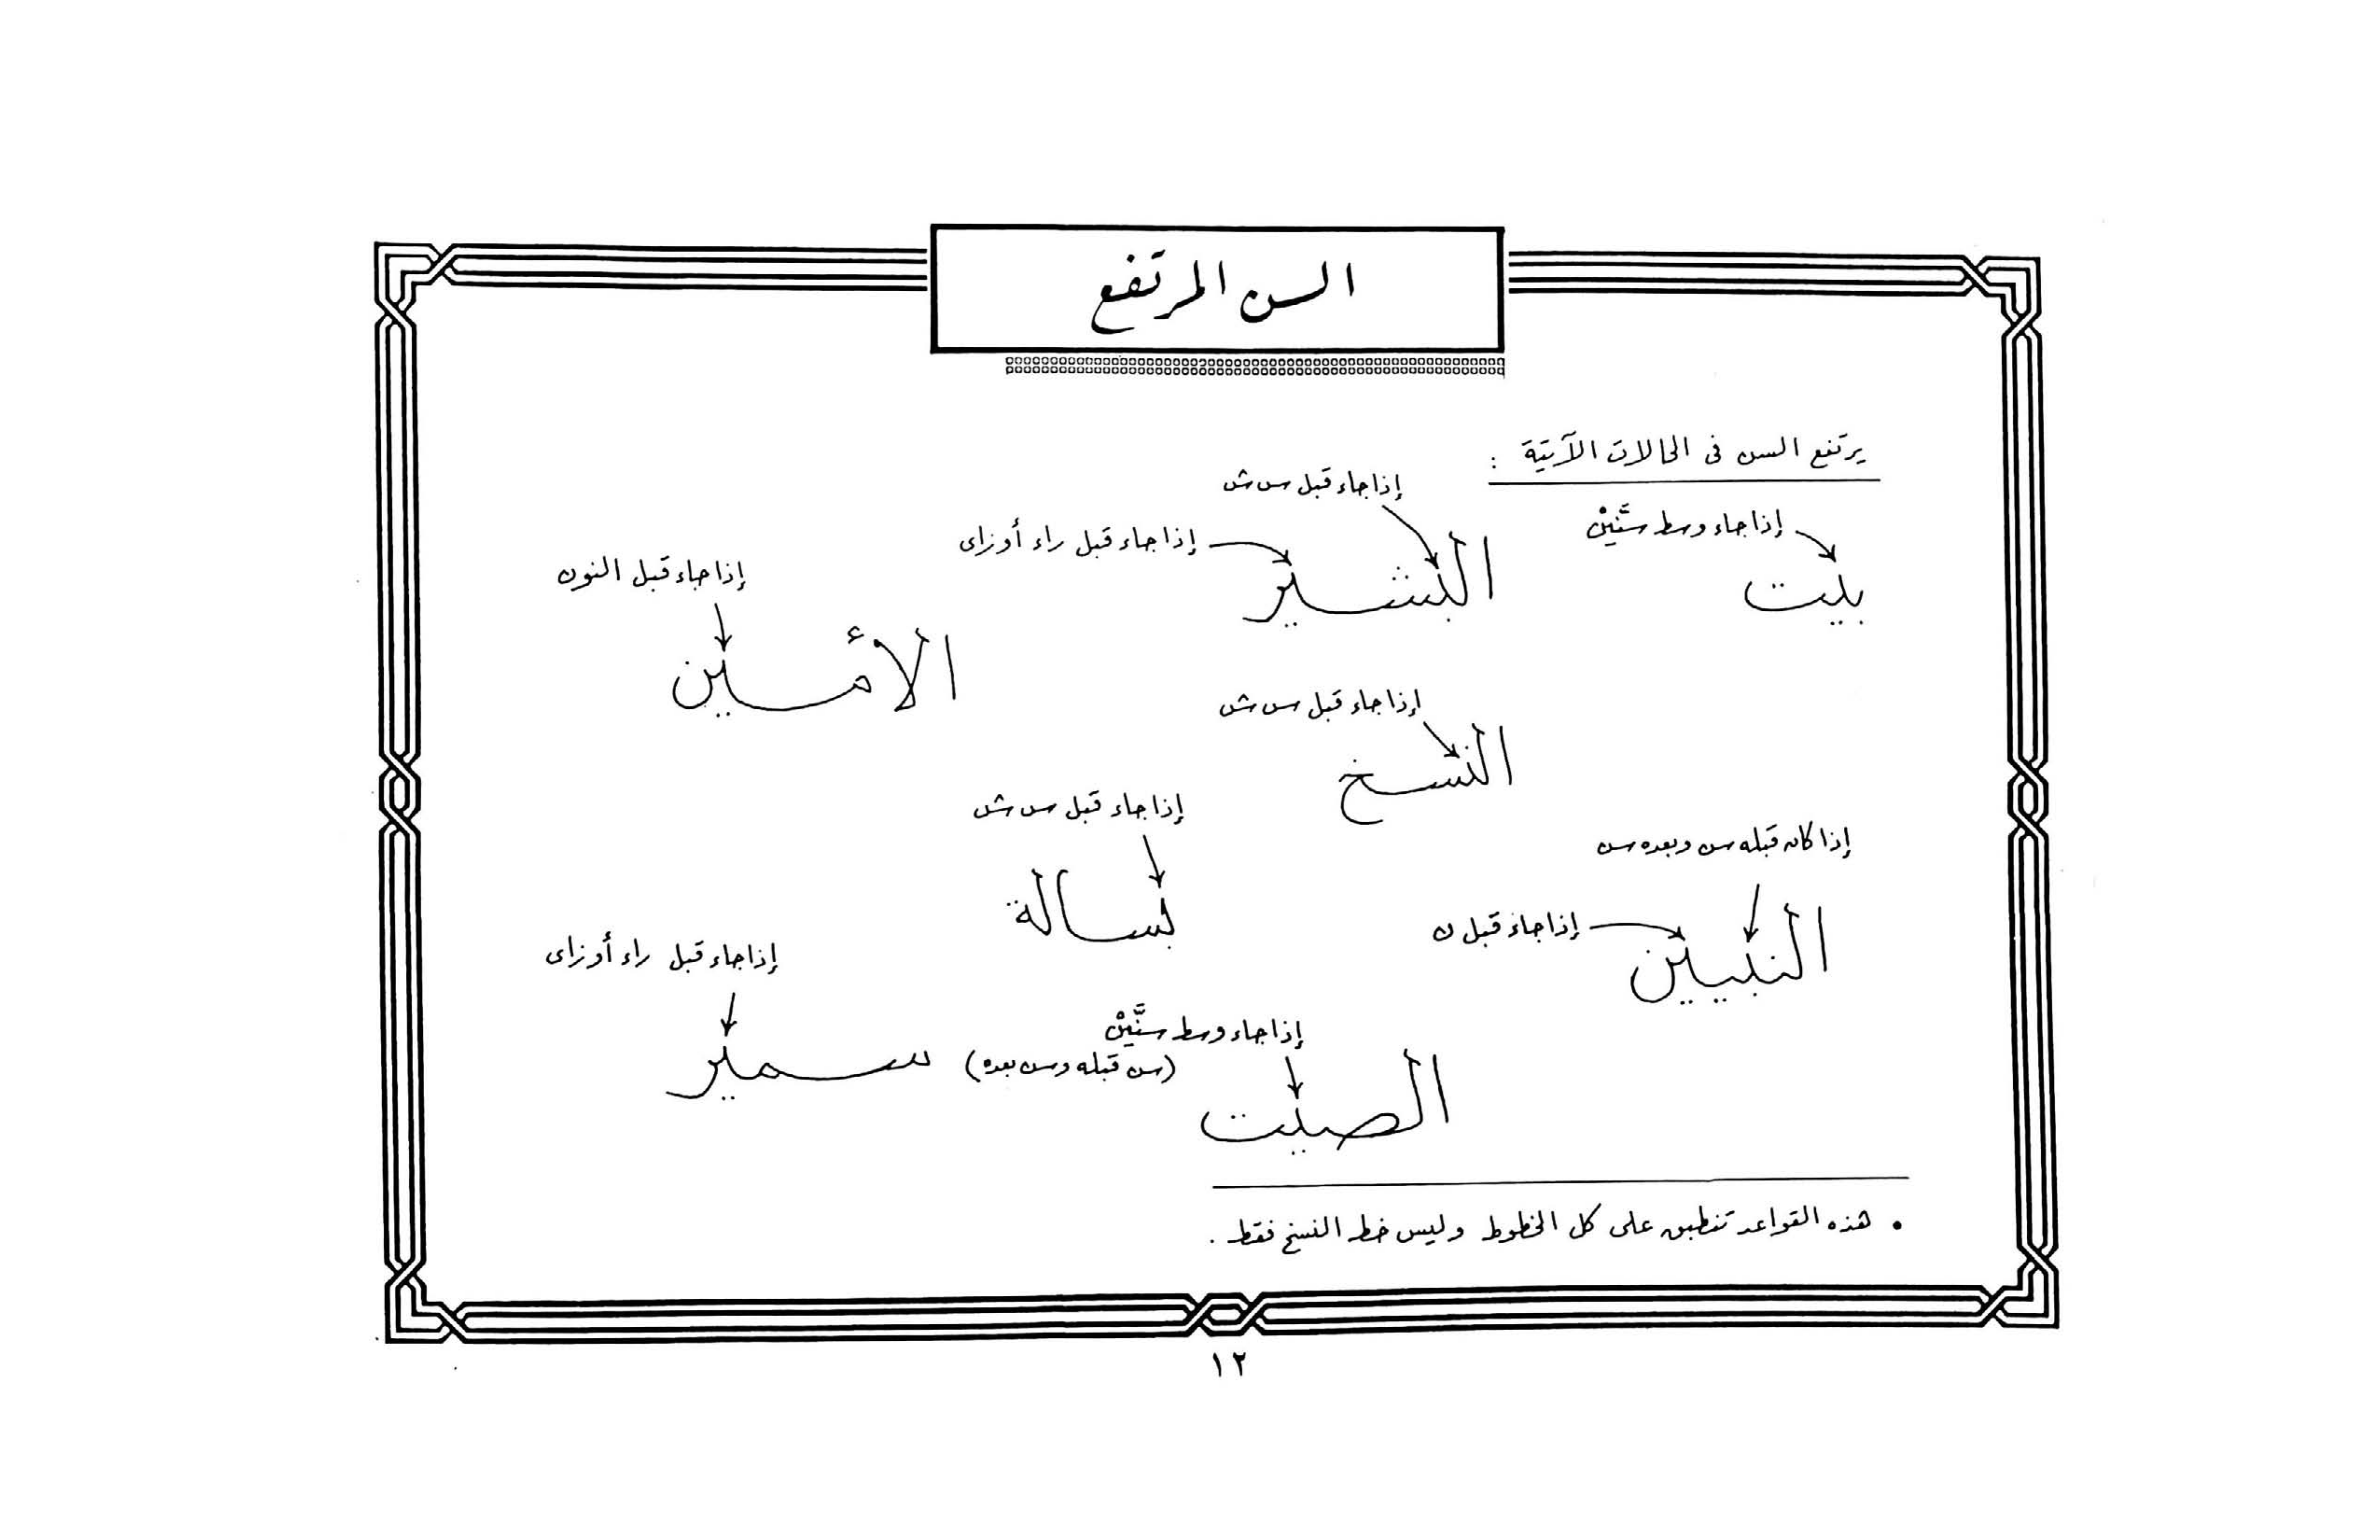 السن المرتفع
يرتفع السن فى الحالات الآتية :
إذا جاء وسط سنَّتين
بيت
إذا جاء قبل س ش
إذا جاء قبل راء أو زاى
البشير
إذا جاء قبل النون
الأمين
إذا جاء قبل س ش
النسخ
إذا جاء قبل س ش
بسالة
إذا كان قبله سن وبعده سن
إذا جاء قبل ن
النبيين
إذا جاء قبل راء أو زاى
سمير
إذا جاء وسط سنَّتين
(سن قبله وسن بعده)
الصيت
• هذه القواعد تنطبق على كل الخطوط وليس خط النسخ فقط .
١٢